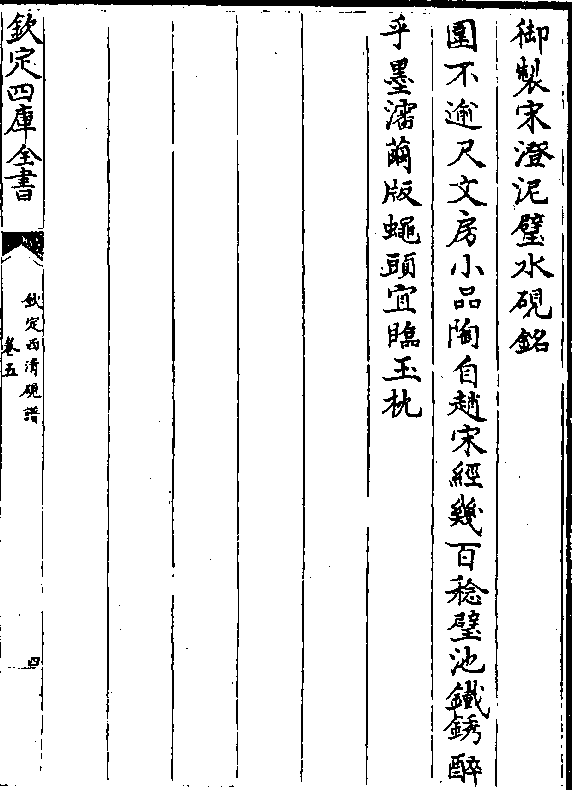 御製宋澄泥璧水硯銘
圍不逾尺文房小品陶自趙宋經幾百稔璧池鐵銹酵
乎墨瀋繭版蠅頭宜臨玉枕
欽定四庫全書
欽定西清硯譜
卷五
四